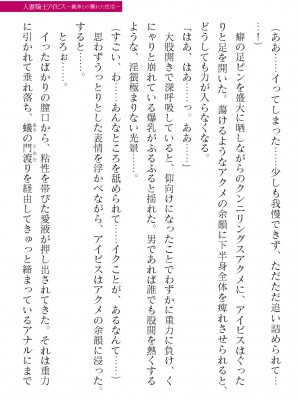 人妻騎士アイビス
(ああ……イってしまった……少しも我慢できず、ただただ追い詰められて……
……!)
癖の足ピンを盛大に晒しながらのクンニリングスアクメに、アイビスはぐった
りと足を開いた。蕩けるようなアクメの余韻に下半身全体を痺れさせられると、
どうしても力が入らなくなる。
「はあ、はあ……っ。ああ……」
大股開きで深呼吸していると、仰向けになったことでわずかに重力に負け、く
にゃりと崩れている爆乳がふるふると揺れた。男であれば誰でも股間を熱くする
ような、淫猥極まりない光景。
(すごい、わ……あんなところを舐められて……イクことが、あるなんて……)
思わずうっとりとした表情を浮かべながら、アイビスはアクメの余韻に浸った。
とろぉ……。
イったばかりの膣口から、粘性を帯びた愛液が押し出されてきた。それは重力
に引かれて垂れ落ち、蟻の門渡りを経由してきゅっと締まっているアナルにまで